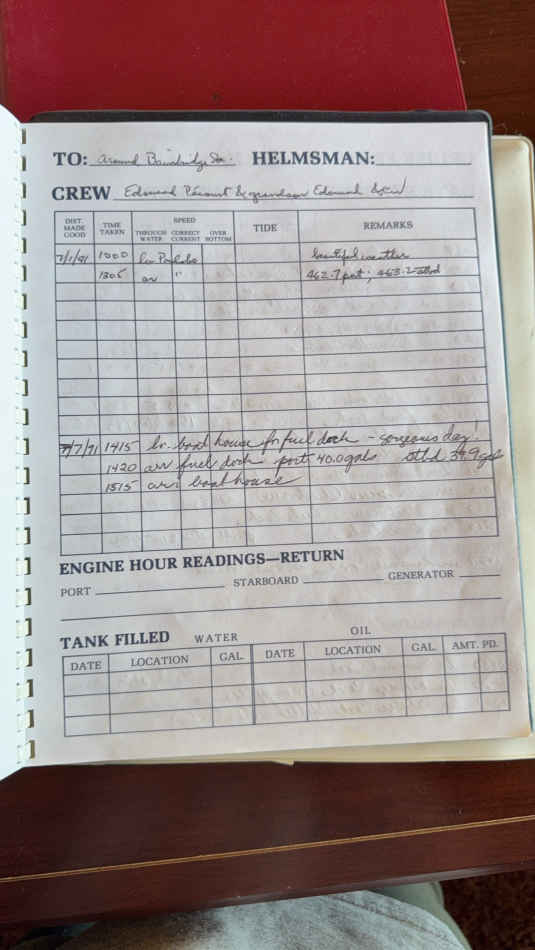 TO: around Bainbridge Isl. HELMSMAN:
CREW Edmund & grandson Edmund
DIST. MADE GOOD TIME TAKEN SPEED THROUGH WATER CORRECT CURRENT OVER BOTTOM TIDE REMARKS
7/1/91 1000 lv beautiful weather
1305 arr " 462.7 port; 463.2 stbd
7/7/91 1415 lv. boat house for fuel dock - gorgeous day!
1420 arr fuel dock port 40.0 gals stbd 39.9 gals
1515 arr. boat house
ENGINE HOUR READINGS—RETURN
PORT STARBOARD GENERATOR
TANK FILLED WATER OIL
DATE LOCATION GAL. DATE LOCATION GAL. AMT. PD.